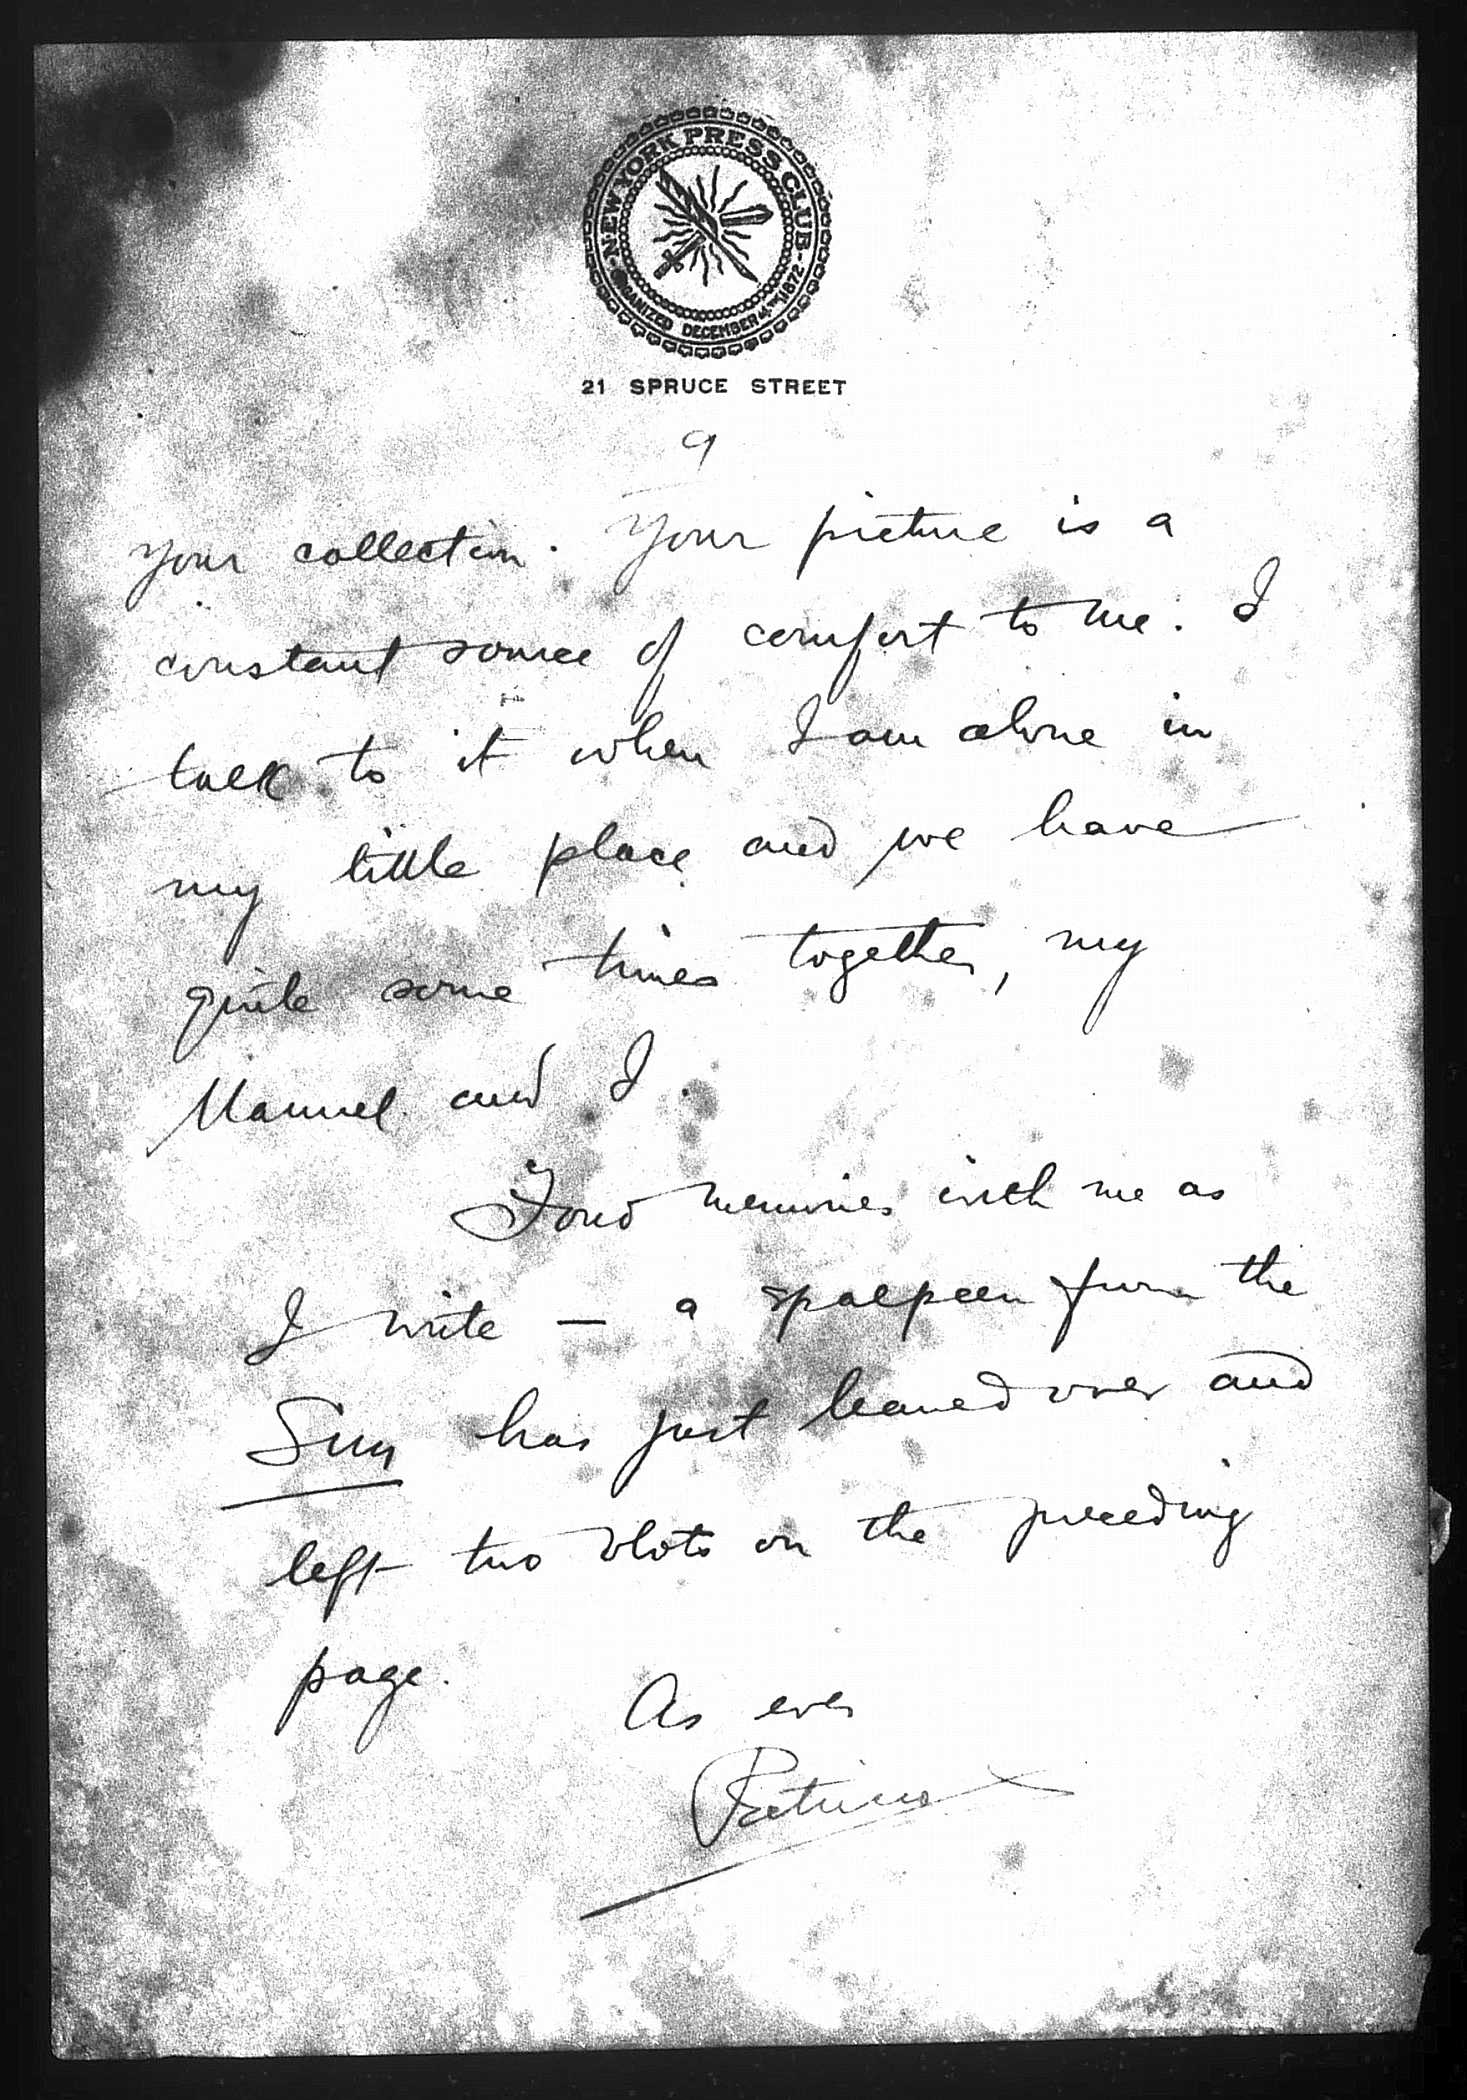 NEW YORK PRESS CLUB
ORGANIZED DECEMBER 4TH 1872
21 SPRUCE STREET
9
your collection. Your picture is a
constant source of comfort to me. I
talk to it when I am alone in
my little place and we have
quite some times together, my
Manuel and I.
Fond memories with me as
I write — a spalpeen from the
Sun has just leaned over and
left two blots on the preceding
page.
As ever